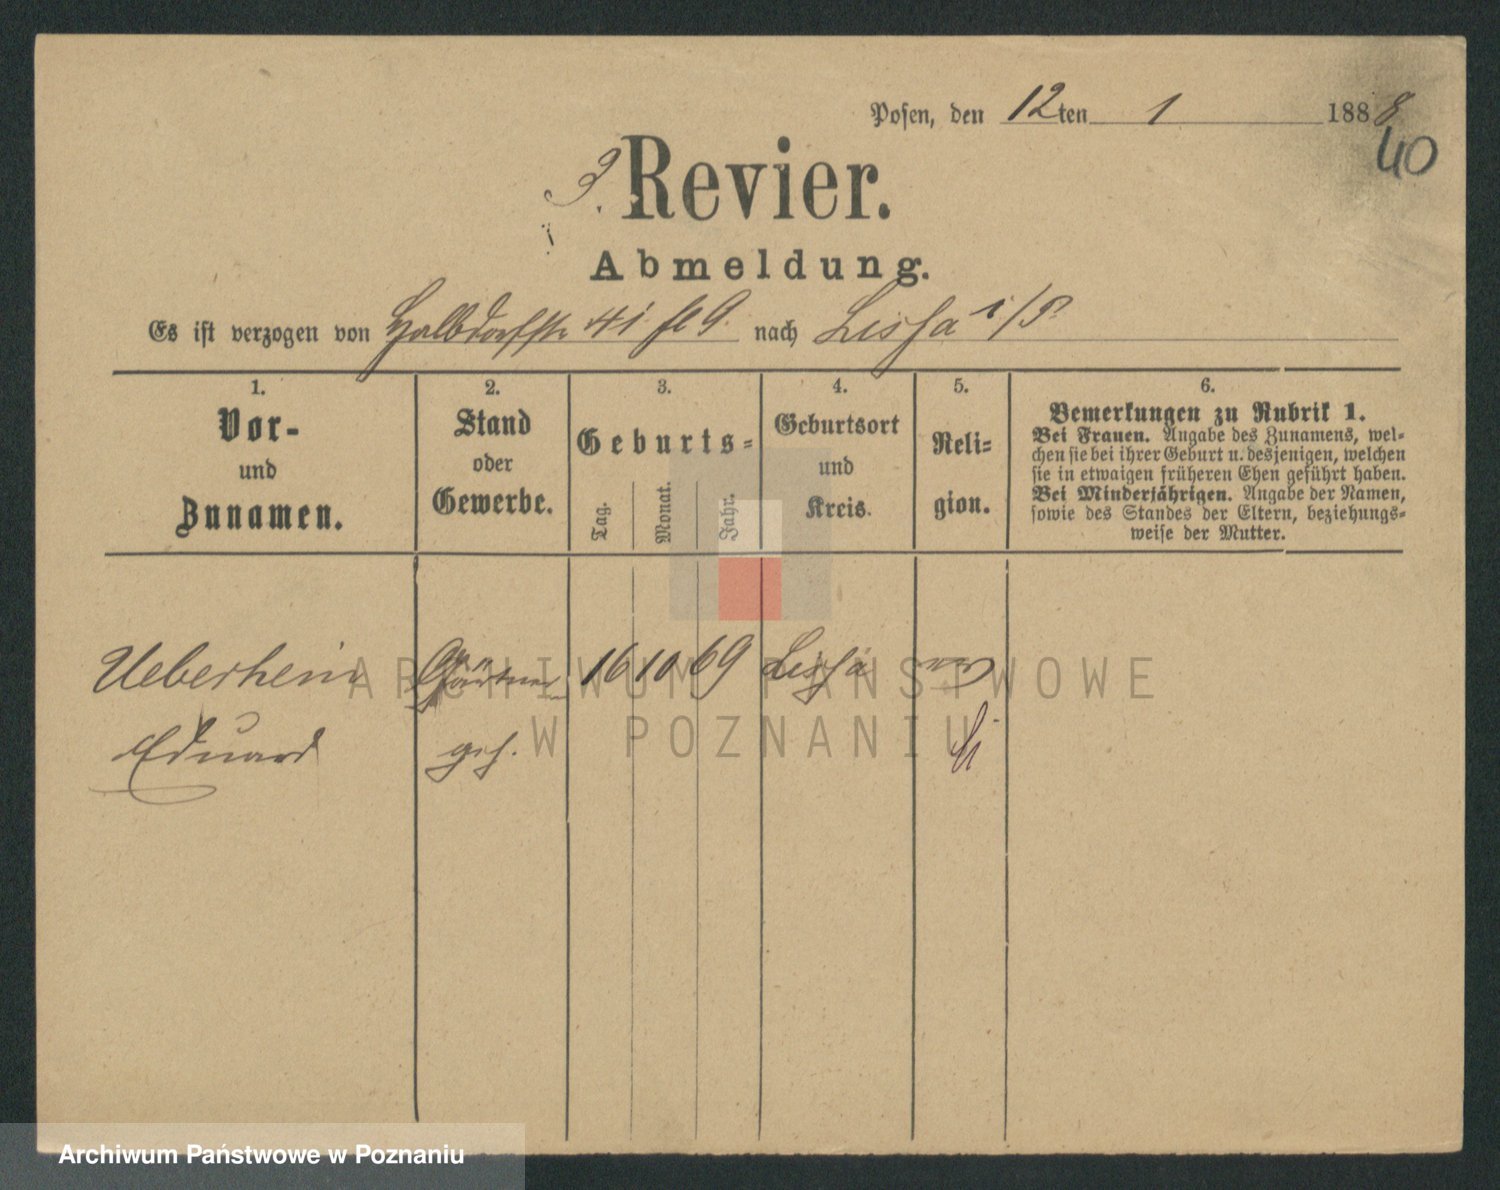 Posen, den 12ten 1 1888
40
3. Revier.
Abmeldung.
Es ist verzogen von Halbdorfstr 41 nach Lissa i/P
1. 2. 3. 4. 5. 6.
Vor-
und
Zunamen.
Stand
oder
Gewerbe.
Geburts-
Tag. Monat. Jahr.
Geburtsort
und
Kreis.
Reli-
gion.
Bemerkungen zu Rubrik 1.
Bei Frauen. Angabe des Zunamens, wel-
chen sie bei ihrer Geburt u. desjenigen, welchen
sie in etwaigen früheren Ehen geführt haben.
Bei Minderjährigen. Angabe der Namen,
sowie des Standes der Eltern, beziehungs-
weise der Mutter.
Ueberhein Gärtner 16 10 69 Lissa
Eduard geh.
ARCHIWUM PAŃSTWOWE
W POZNANIU
Archiwum Państwowe w Poznaniu